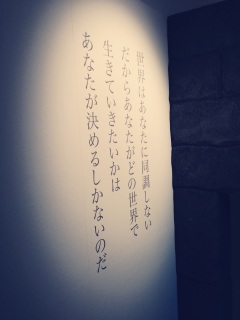 世界はあなたに同調しない
だからあなたがどの世界で
生きていきたいかは
あなたが決めるしかないのだ